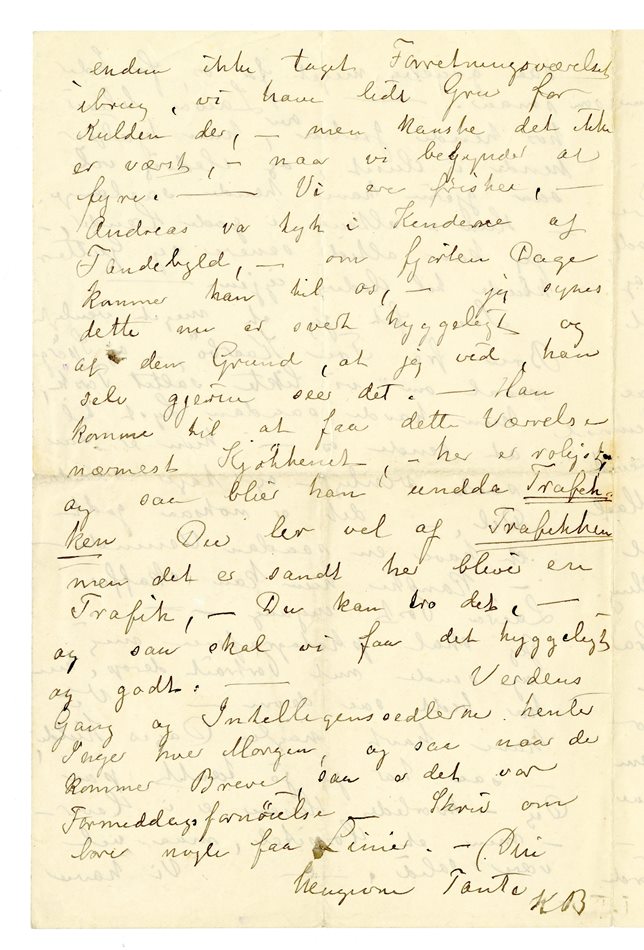 endnu ikke taget Forretningsværelset
ibrug, vi have lidt Gru for
Kulden der, — men kanske det ikke
er værst, — naar vi begynder at
fyre. — Vi ere friske, —
Andreas va tyk i Kenderne af
Tandebyld, — om fjorten Dage
kommer han til os, — jeg synes
dette nu er svært hyggeligt og
af den Grund, at jeg ved, han
selv gjerne seer det. — Han
komme til at faa dette Værrelse
nærmest Kjökkenet, — her er roligst,
og saa blier han undda Trafik-
ken Du ler vel af Trafikken
men det er sandt her bliver en
Trafik, — Du kan tro det, —
og saa skal vi faa det hyggeligt
og godt: — Verdens
Gang og Intelligenssedlerne henter
Inger hver Morgen, og saa naar de
kommer Breve, saa o det var
Formeddagsfornöielse. Skriv om
bare nogle faa Linier. — Din
hengivne Tante
KB